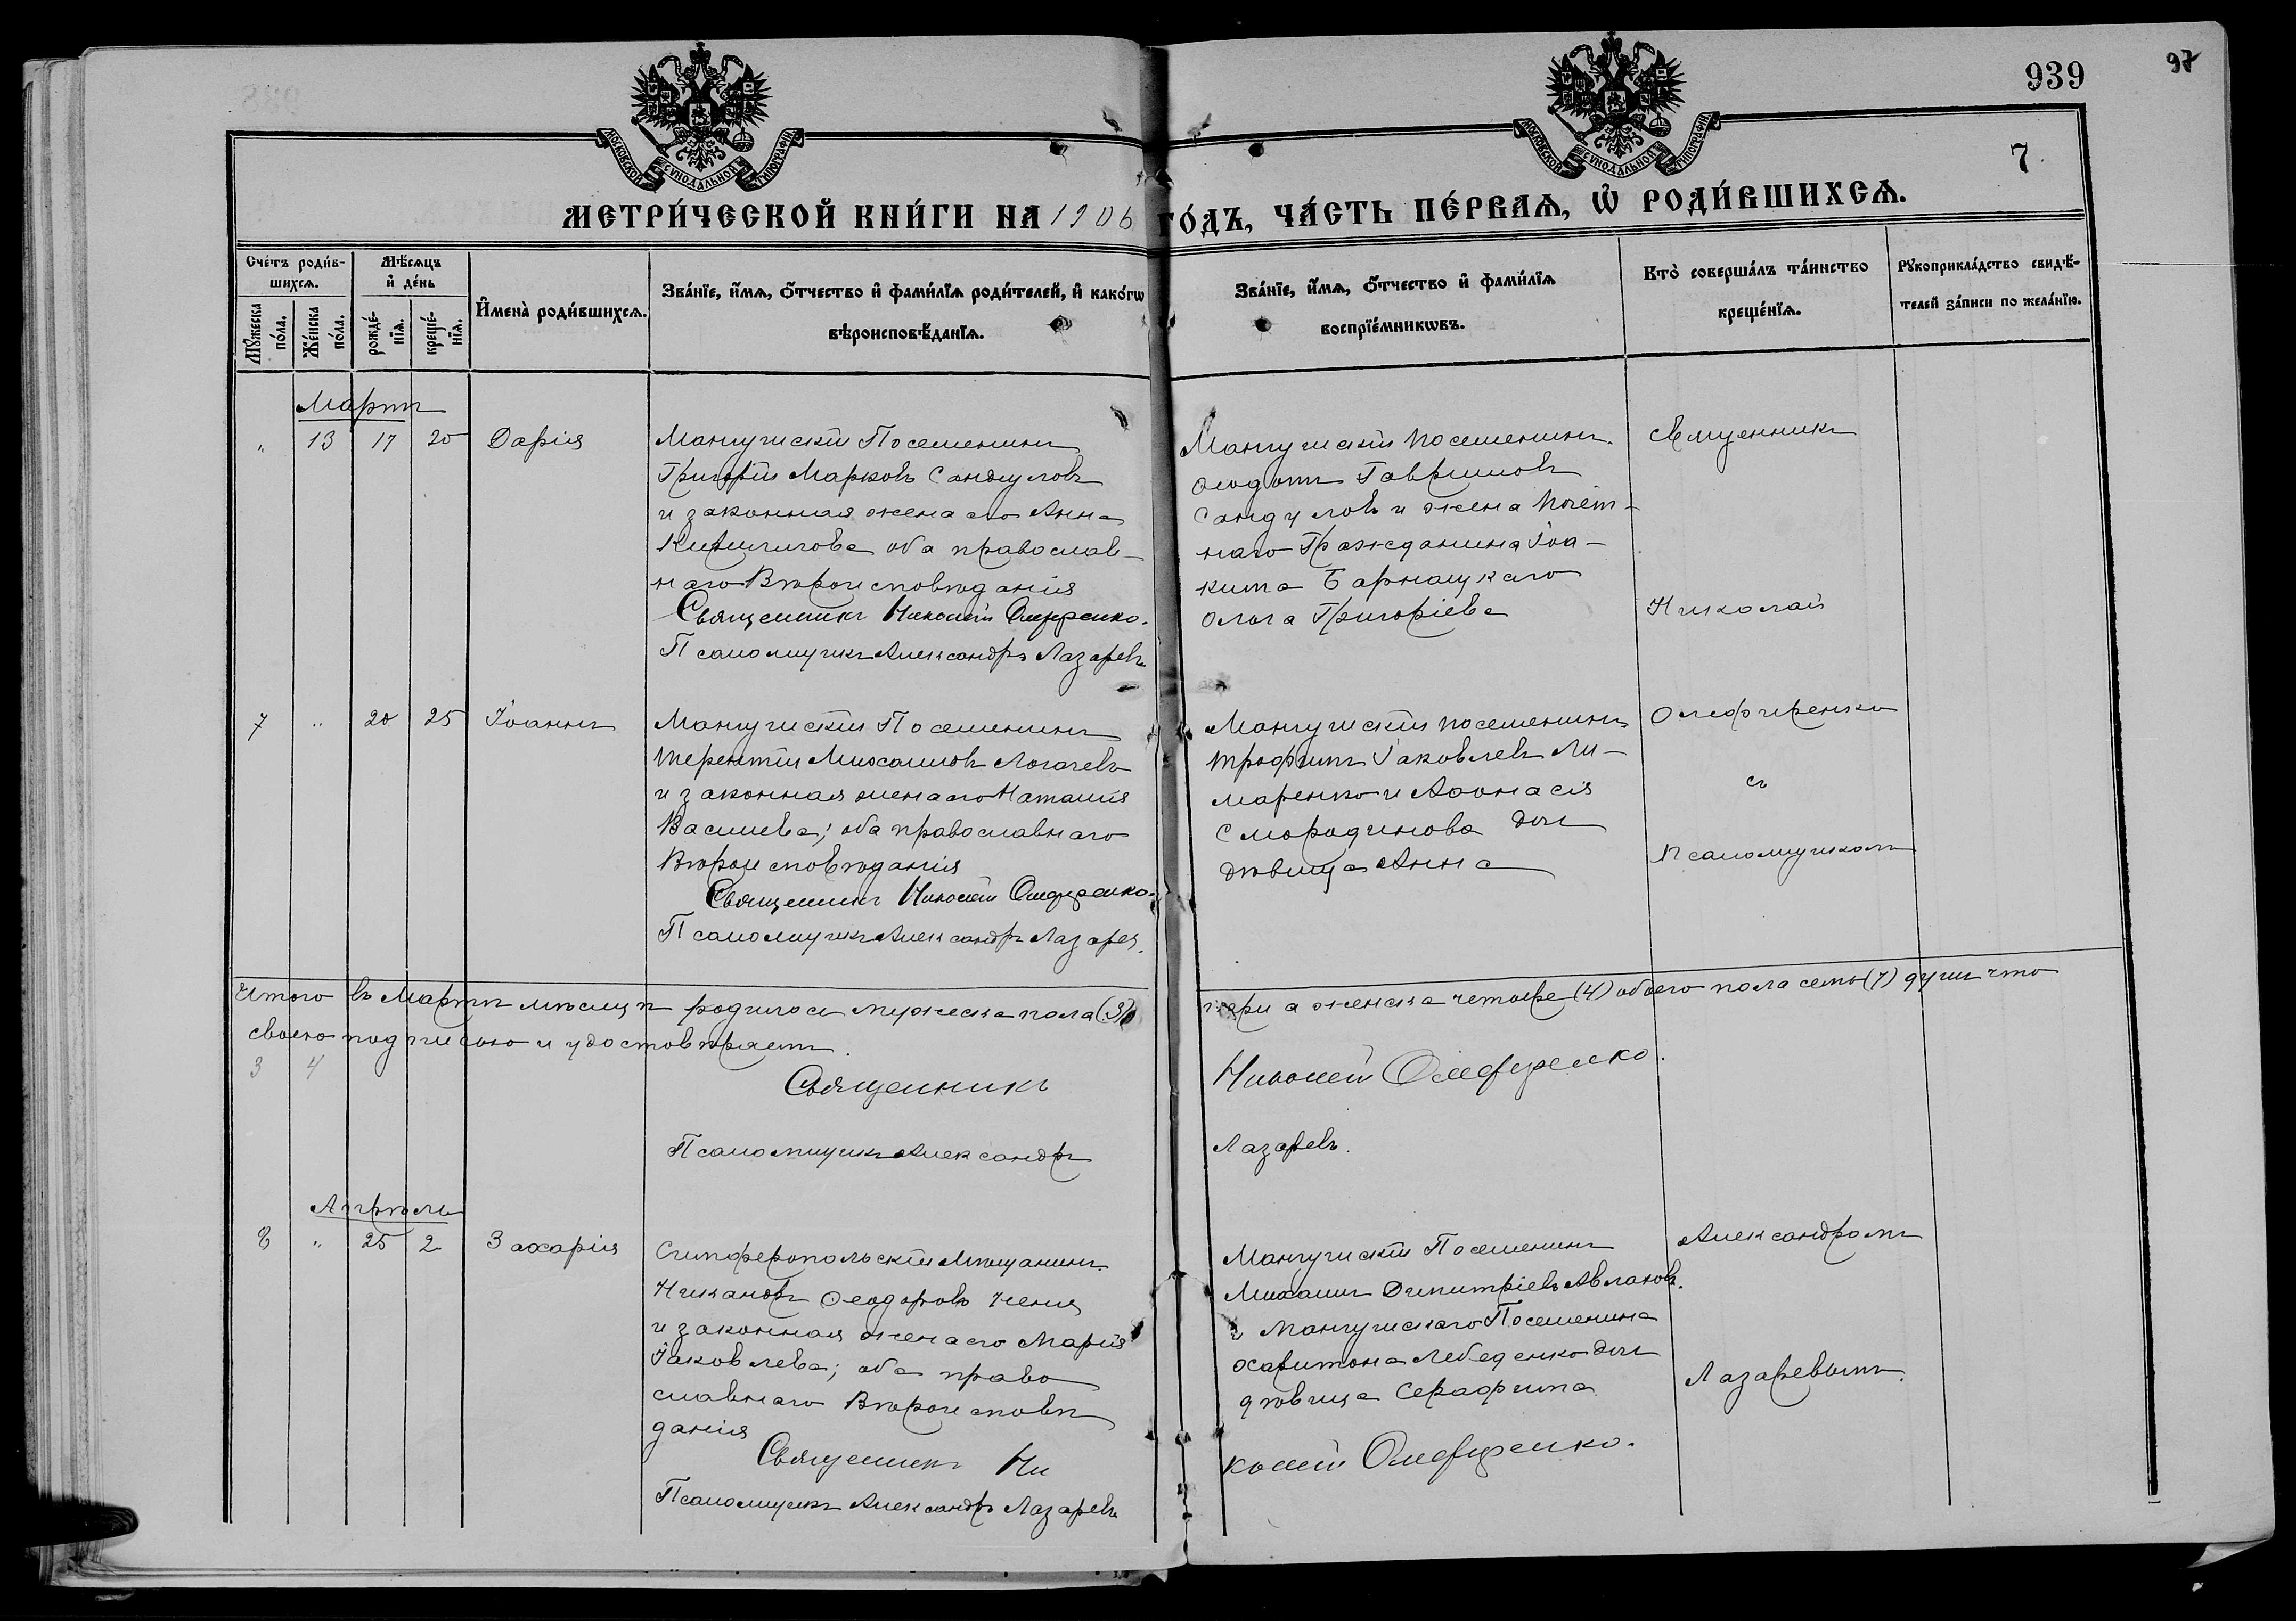 939
97
7
МОСКОВСКОЙ СѴНОДАЛЬНОЙ ТИПОГРАФІИ
МОСКОВСКОЙ СѴНОДАЛЬНОЙ ТИПОГРАФІИ
МЕТРИ́ЧЕСКОЙ КНИ́ГИ НА 1906 ГО́ДЪ, ЧА́СТЬ ПЕ́РВАѦ, Ѡ҆ РОДИ́ВШИХСѦ.
Сче́тъ роди́в-
шихсѧ.
Мꙋжеска по́ла.
Же́нска по́ла.
Мѣ́сѧцъ
и҆ де́нь
рожде́-
нїѧ.
креще́-
нїѧ.
И҆мена̀ роди́вшихсѧ.
Зва́нїе, и҆́мѧ, ѻ҆́тчество и҆ фами́лїѧ роди́телей, и҆ како́гѡ
вѣроисповѣ́данїѧ.
Зва́нїе, и҆́мѧ, ѻ҆́тчество и҆ фами́лїѧ
воспрїе́мникѡвъ.
Кто̀ соверша́лъ та́инство
креще́нїѧ.
Рꙋкоприкла́дство свидѣ́-
телей за́писи по жела́нїю.
Мартъ
" 13 17 20 Дарія
Мангушскій Поселенинъ
Григорій Марковъ Сандуловъ
и законная жена его Анна
оба православ-
наго Вѣроисповѣданія
Священникъ Николай Олефиренко.
Псаломщикъ Александръ Лазаревъ
Мангушскій поселенинъ
Ѳеодотъ Гавриловъ
Сандуловъ и жена почет-
наго Гражданина Іоа-
кима Барнацкаго
Ольга Григоріева
Священникъ
Николай
7 " 20 25 Іоаннъ
Мангушскій Поселенинъ
Терентій Михаиловъ Логачевъ
и законная жена его Наталія
Василева; оба православнаго
Вѣроисповѣданія
Священникъ Николай Олефиренко.
Псаломщикъ Александръ Лазарев.
Мангушскій поселенинъ
Трофимъ Іаковлевъ Ли-
маренко и Аѳонасія
Смородинова дочь
дѣвица Анна
Олефиренко
съ
псаломщикомъ
Итого въ Мартѣ мѣсяцѣ родилось мужеска пола (3) три а женска четыре (4) обоего пола семь (7) душъ что
своею подписью и удостовѣряемъ.
3 4
Священникъ Николай Олефиренко.
Псаломщикъ Александръ Лазаревъ.
Апрѣль
8 " 25 2 Захарія
Симферопольскій Мѣщанинъ
Никаноръ Ѳеодоровъ
и законная жена его Марія
Іаковлева; оба право
славнаго Вѣроисповѣ
данія
Священникъ Николай Олефиренко.
Псаломщикъ Александръ Лазаревъ
Мангушскій Поселенинъ
Михаилъ Димитріевъ Авлаховъ.
и Мангушскаго Поселенина
Харитона Лебеденко дочь
дѣвица Серафима
Александромъ
Лазаревымъ.